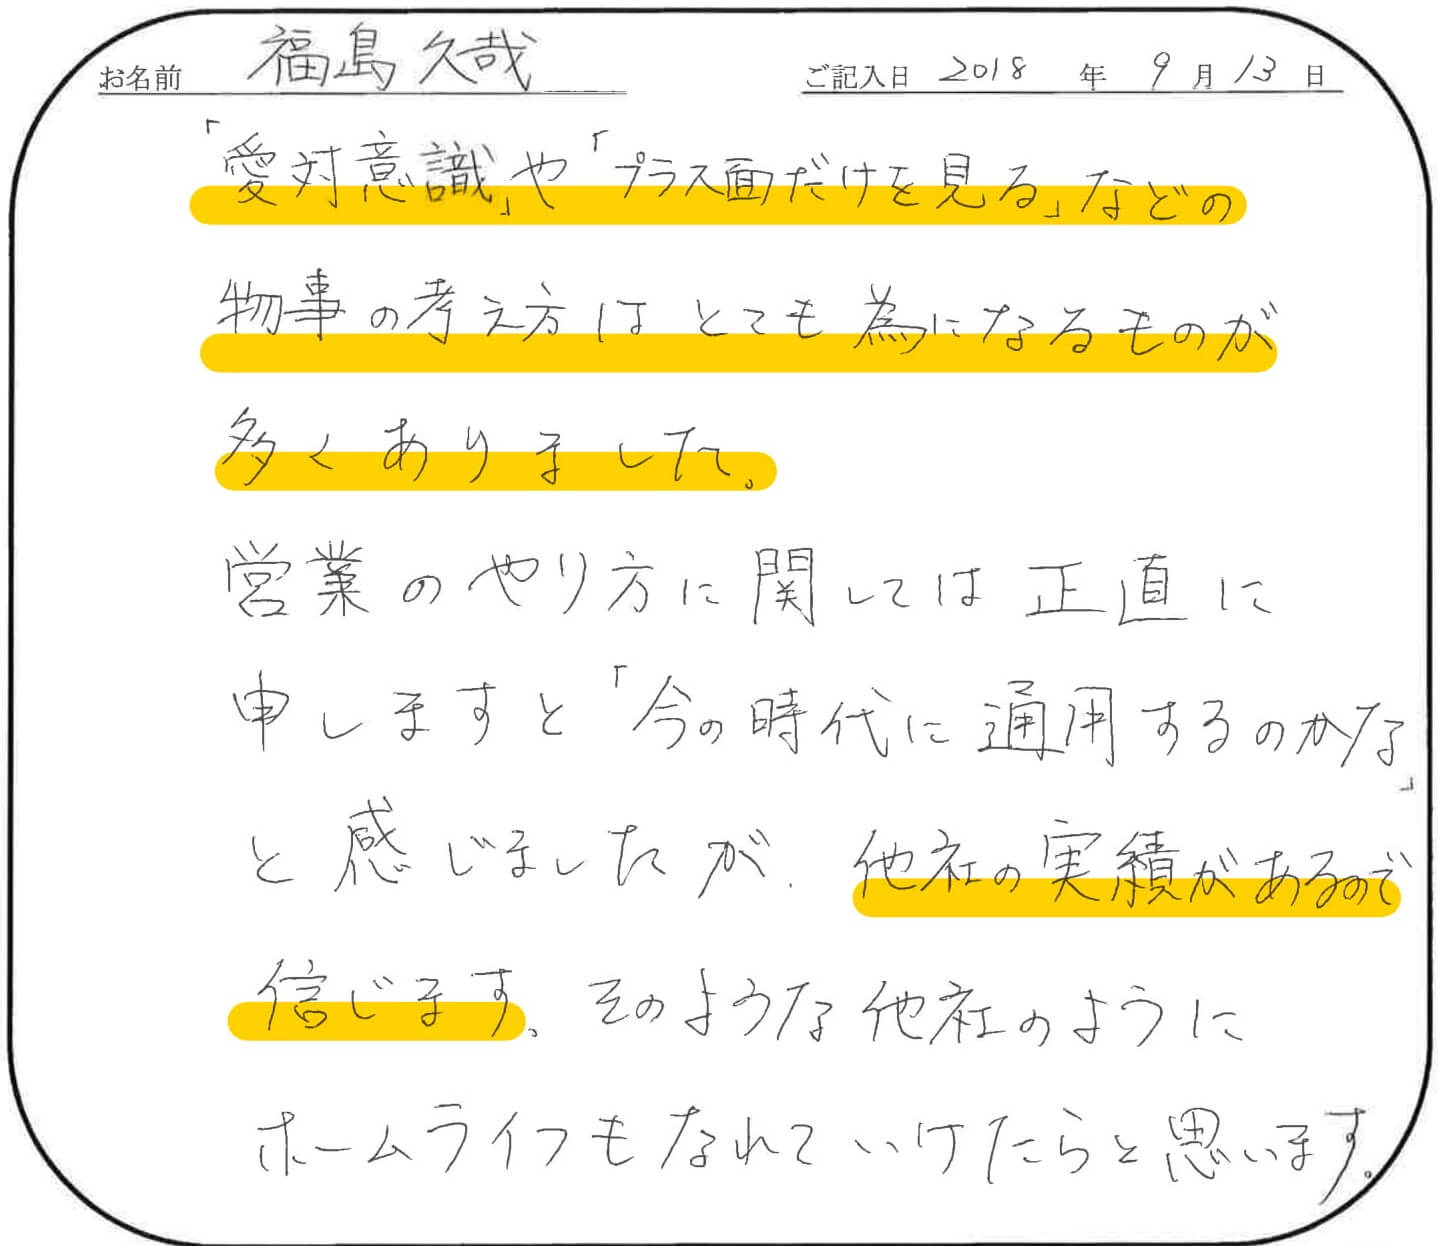 お名前 福島久哉 ご記入日 2018 年 9 月 13 日
「愛対意識」や「プラス面だけを見る」などの
物事の考え方はとても為になるものが
多くありました。
営業のやり方に関しては正直に
申しますと「今の時代に通用するのかな」
と感じましたが、他社の実績があるので
信じます。そのような他社のように
ホームライフもなれていけたらと思います。